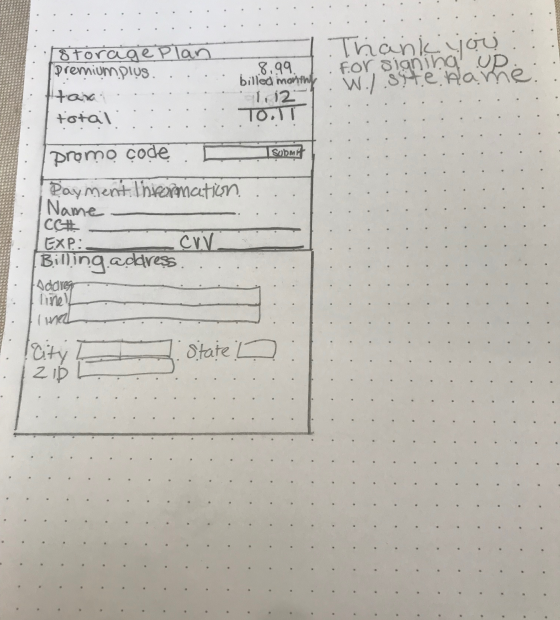 Storage Plan
Premiumplus 8.99
billed monthly
tax 1.12
total 10.11
promo code Submit
Payment Information
Name
CC#
EXP: CVV
Billing address
Address
line1
line2
City State
ZIP
Thank you
for signing up
w/ site name.